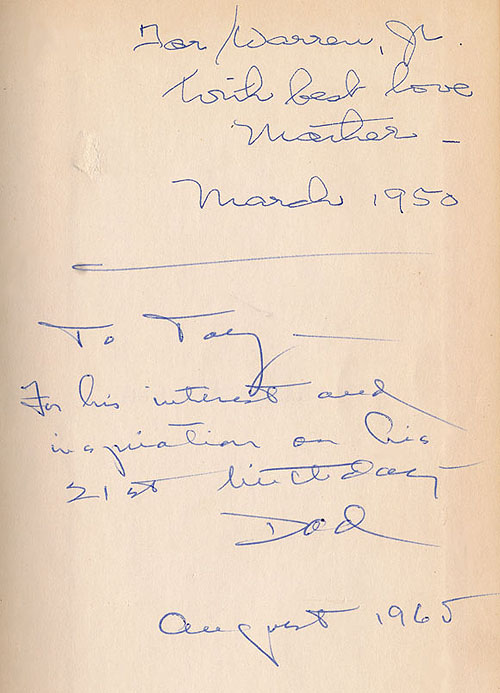 For Warren, Jr.
With best love
Mother –
March 1950
To Tony —
For his interest and
inspiration on his
21st birthday
Dad
August 1965